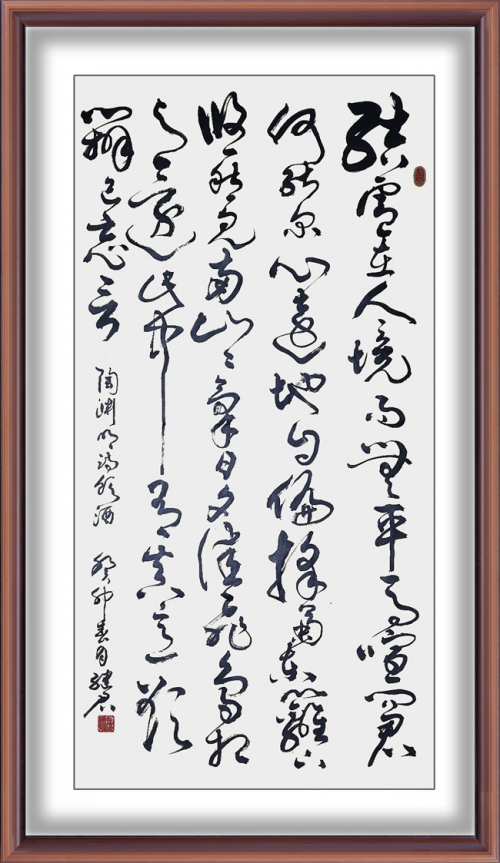 結廬在人境而無車馬喧問君
何能爾心遠地自偏採菊東籬下
悠然見南山〻氣日夕佳飛鳥相
与還此中有真意欲
辨已忘言
陶淵明詩飲酒 癸卯春月